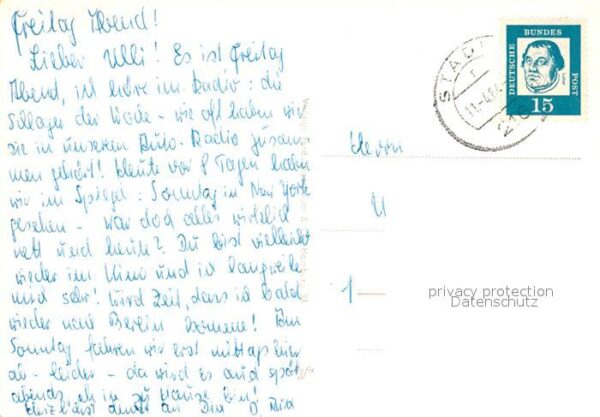 Freitag Abend!
Lieber Ulli! Es ist Freitag
Abend, ich höre im Radio: die
Schlager der Woche - wie oft haben wir
sie in unserem Auto-Radio zusam
men gehört! Heute vor 8 Tagen haben
wir im Spiegel: Sonntag in New York
gesehen - war doch alles wirklich
nett und heute? Du bist vielleicht
wieder im Kino und ich langweile
mich sehr! Wird Zeit, dass ich bald
wieder nach Berlin komme! Am
Sonntag fahren wir erst mittags hier
ab - leider - da wird es auch spät
abends eh ich zu Hause bin!
denkt an Dich
DEUTSCHE BUNDES POST
Luther
15
STADT
11.-4.64
216
Herrn
U
1
privacy protection
Datenschutz